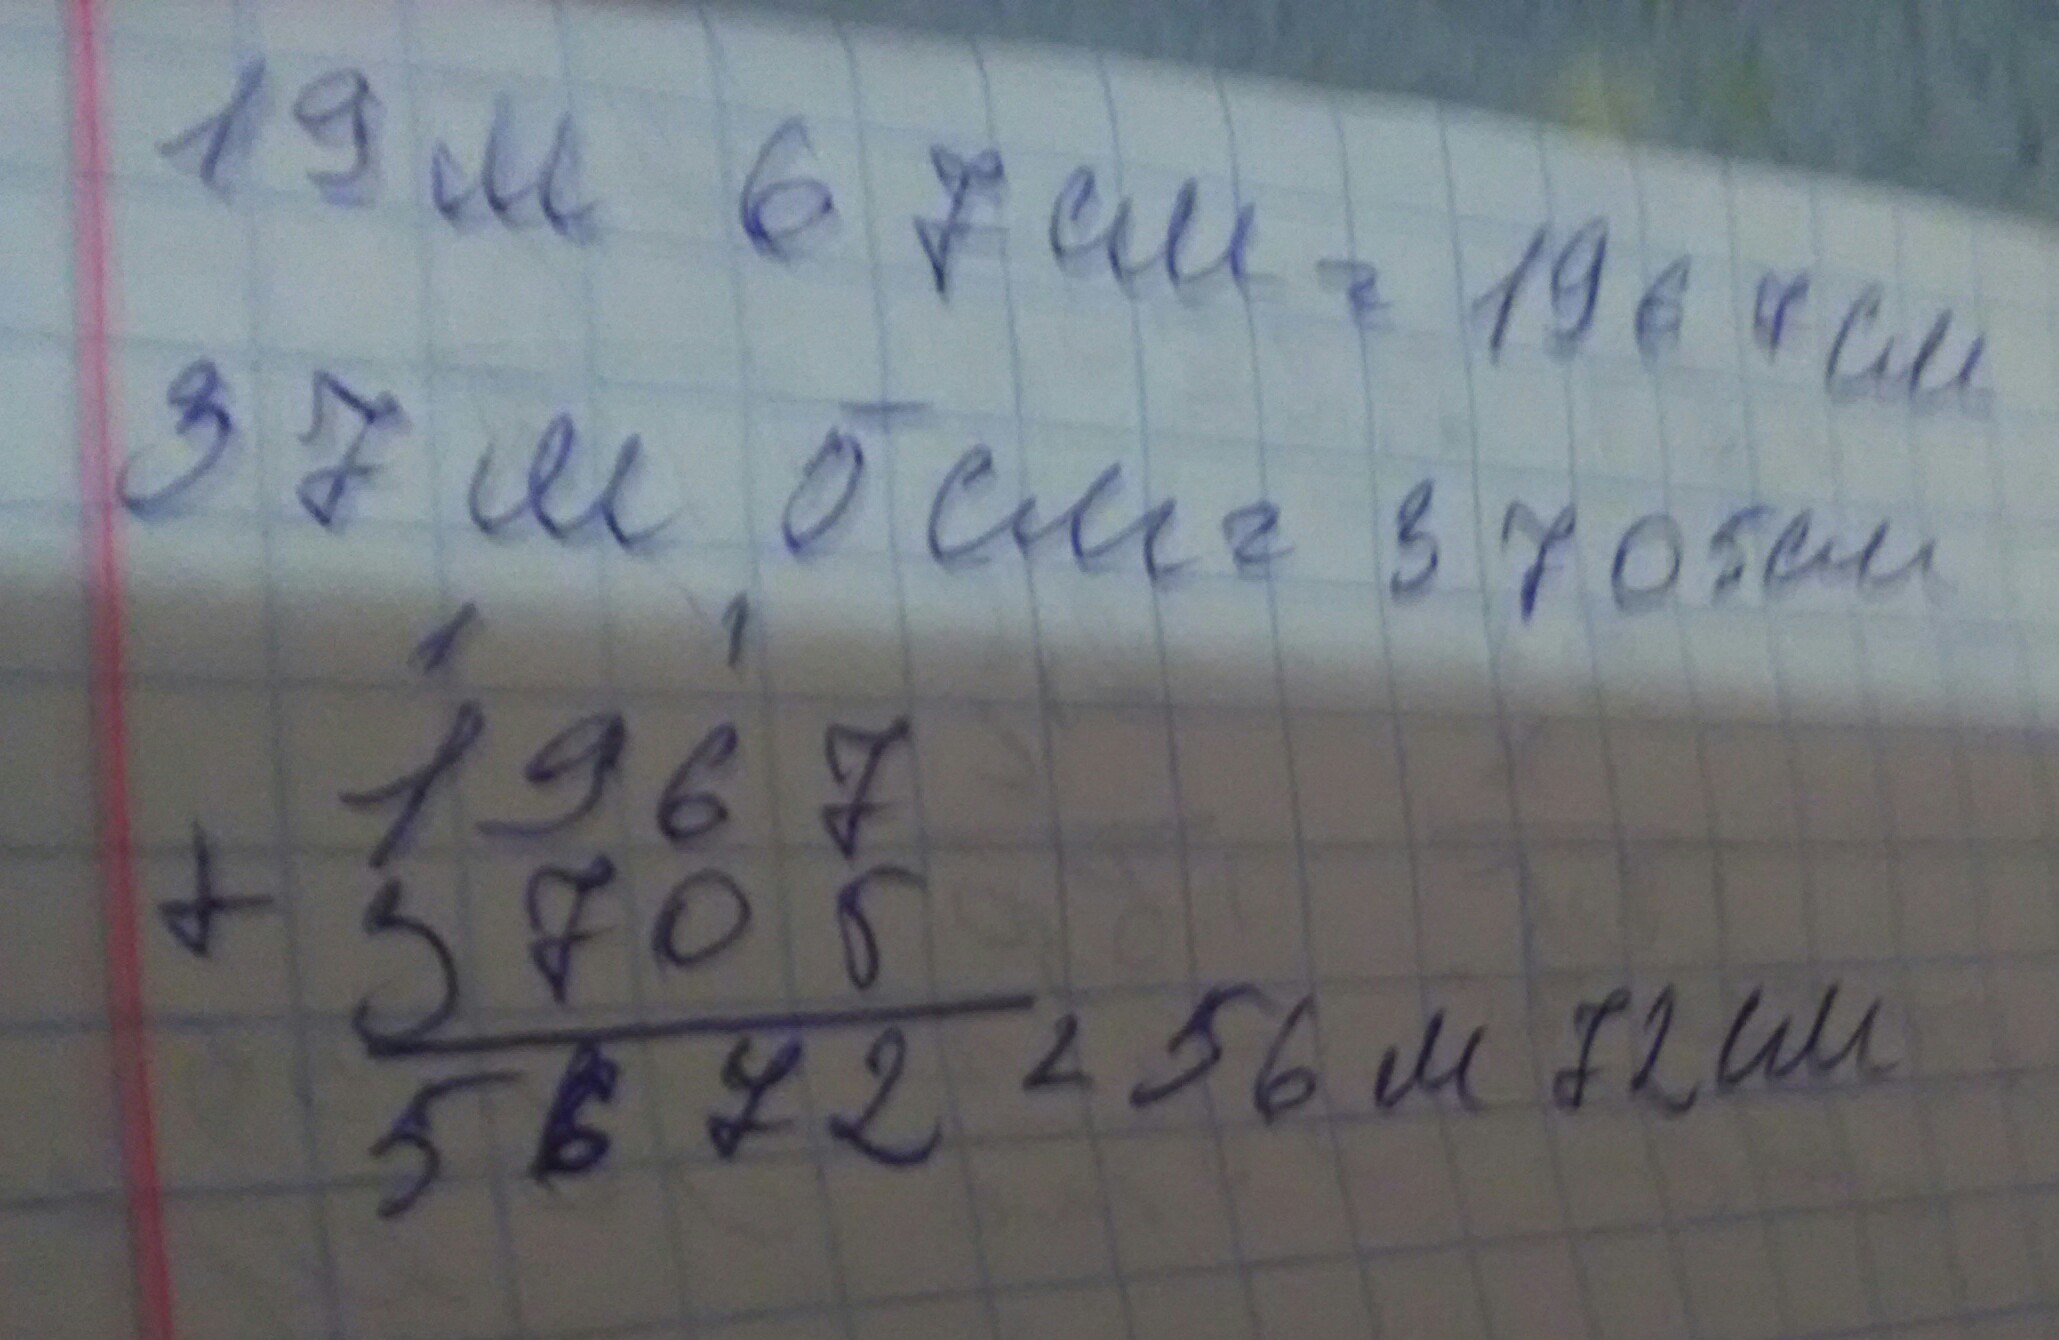 19м 67см = 1967см
37м 5см = 3705см
1 1
1967
+ 3705
5672 = 56м 72см